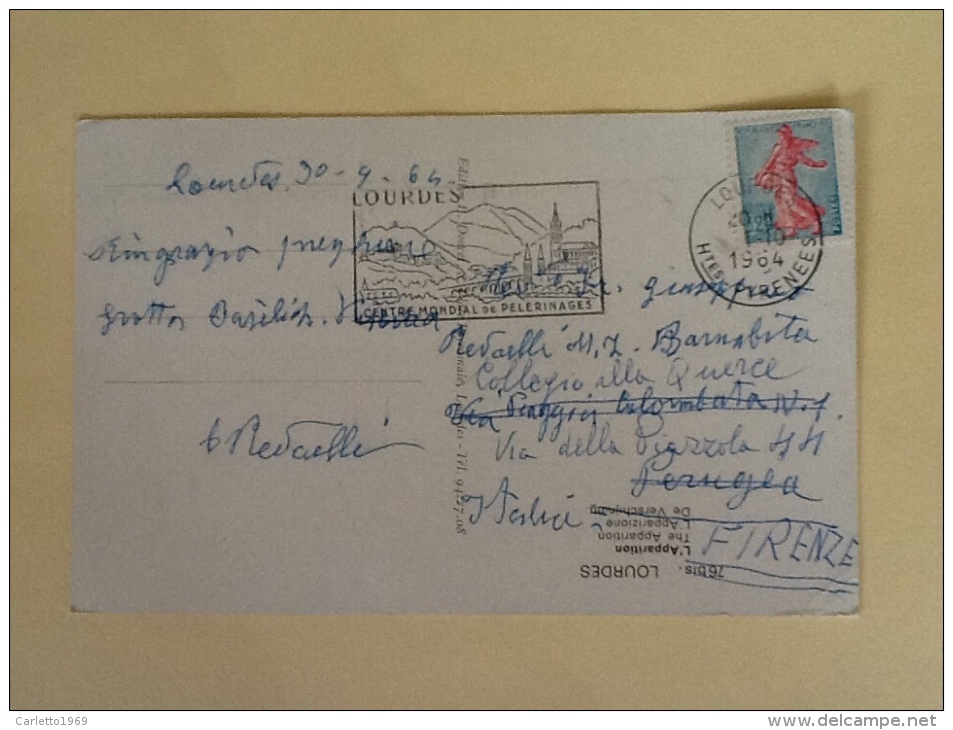 Lourdes, 30-9-64
Ringrazio preghiamo
grotta Basilich.
G Redaelli
LOURDES
CENTRE MONDIAL DE PELERINAGES
LOURDES
1964
Htes PYRENEES
Giuseppe
Redaelli M, Z. Barnabita
Collegio alla Querce
Via Colombata N. 1.
Via della Piazzola 44
Perugia
Italia
FIRENZE
76 bis. LOURDES
L'Apparition
The Apparition
L'Apparizione
De Verschijning
Tél. 94-27-08
Carletto1969
www.delcampe.net